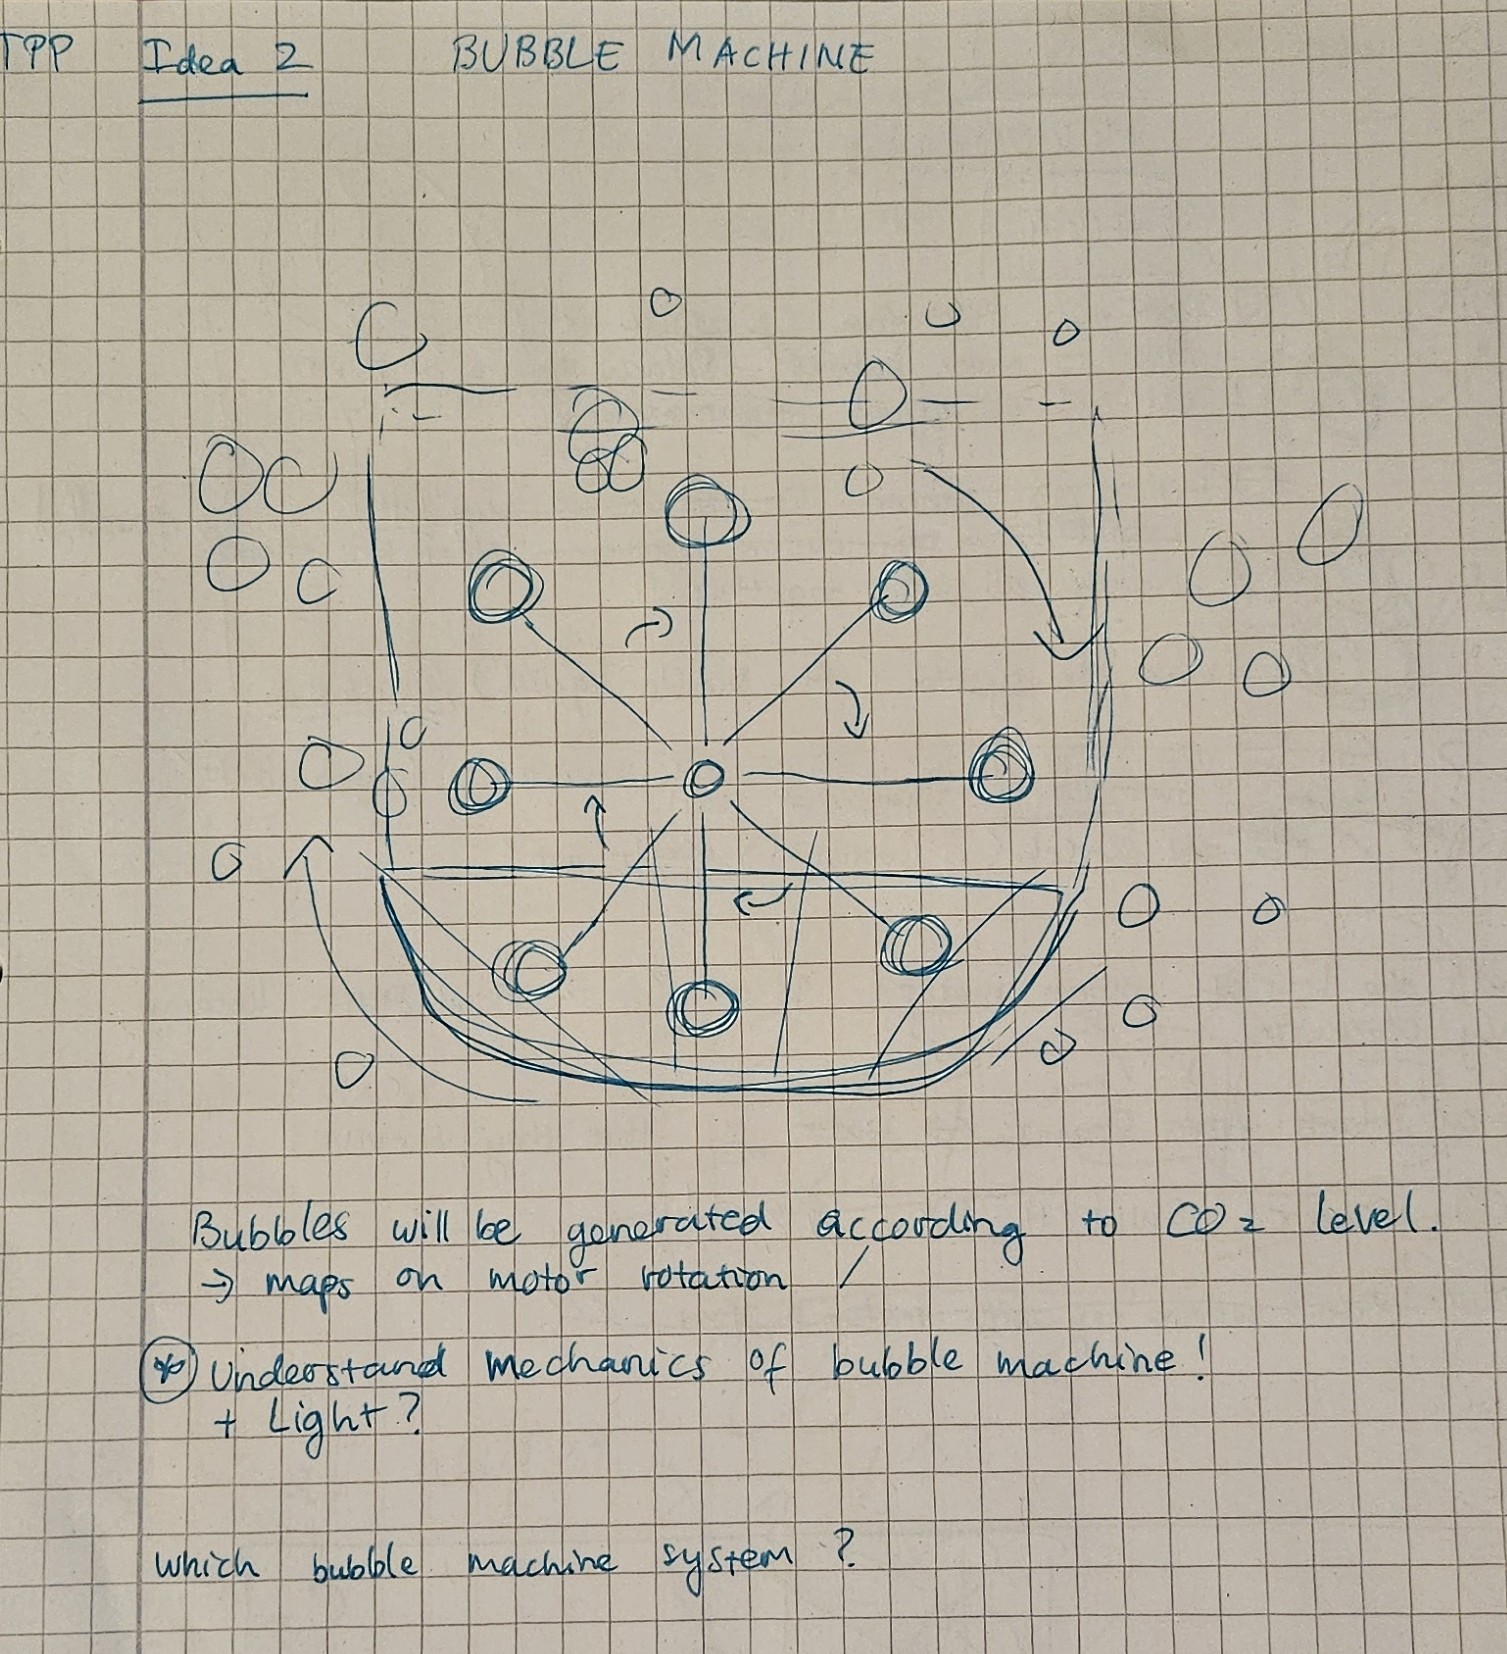 TPP Idea 2 BUBBLE MACHINE
Bubbles will be generated according to CO2 level.
→ maps on motor rotation /
* Understand mechanics of bubble machine!
+ Light?
which bubble machine system ?